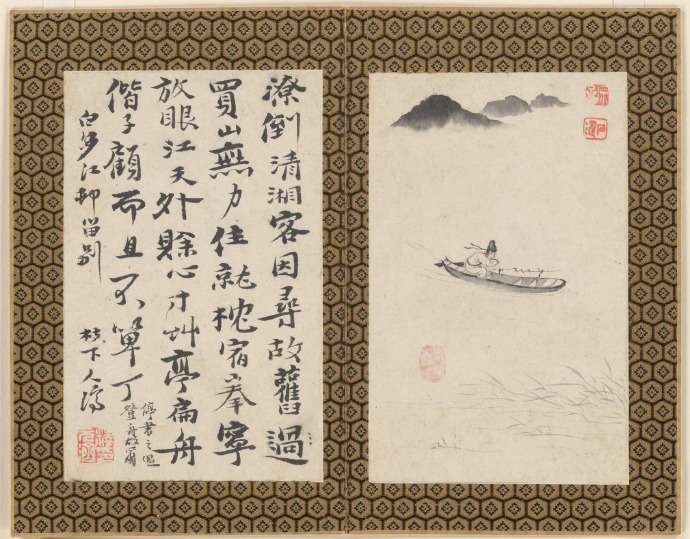 潦倒清湘客因尋故舊過
買山無力住就枕宿奉寧
放眼江天外賒心寸艸亭扁舟
偕子顧而且不單丁
停君之
登舟故爾
白沙江邨留別
枝下人濟